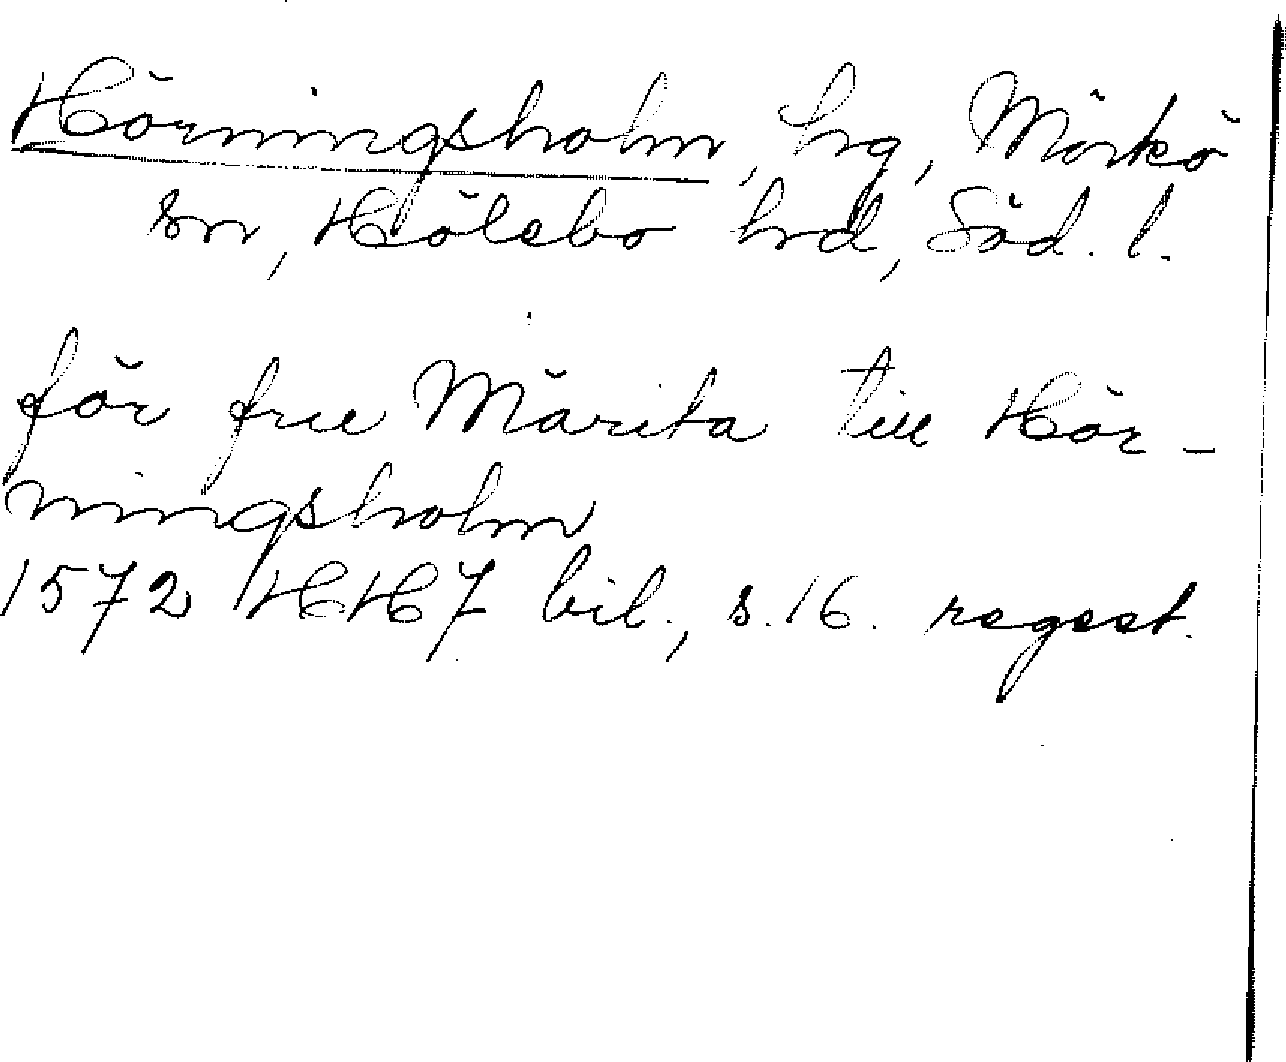 Hörningsholm, hg, Mörkö
sn, Hölebo hrd, Söd. l.
för frue Märita till Hör-
ningsholm
1572 HH7 bil., s. 16. regest.